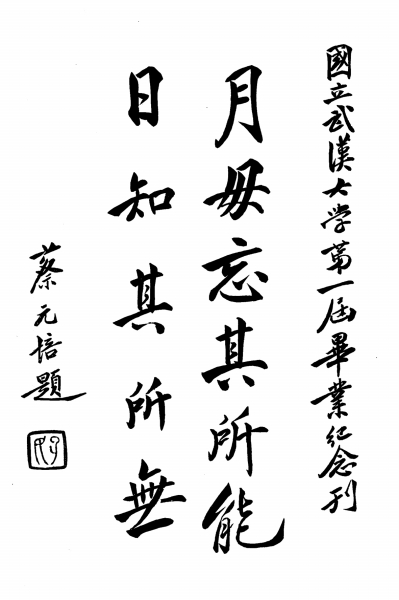 國立武漢大学第一屆畢業紀念刊
月毋忘其所能
日知其所無
蔡元培題